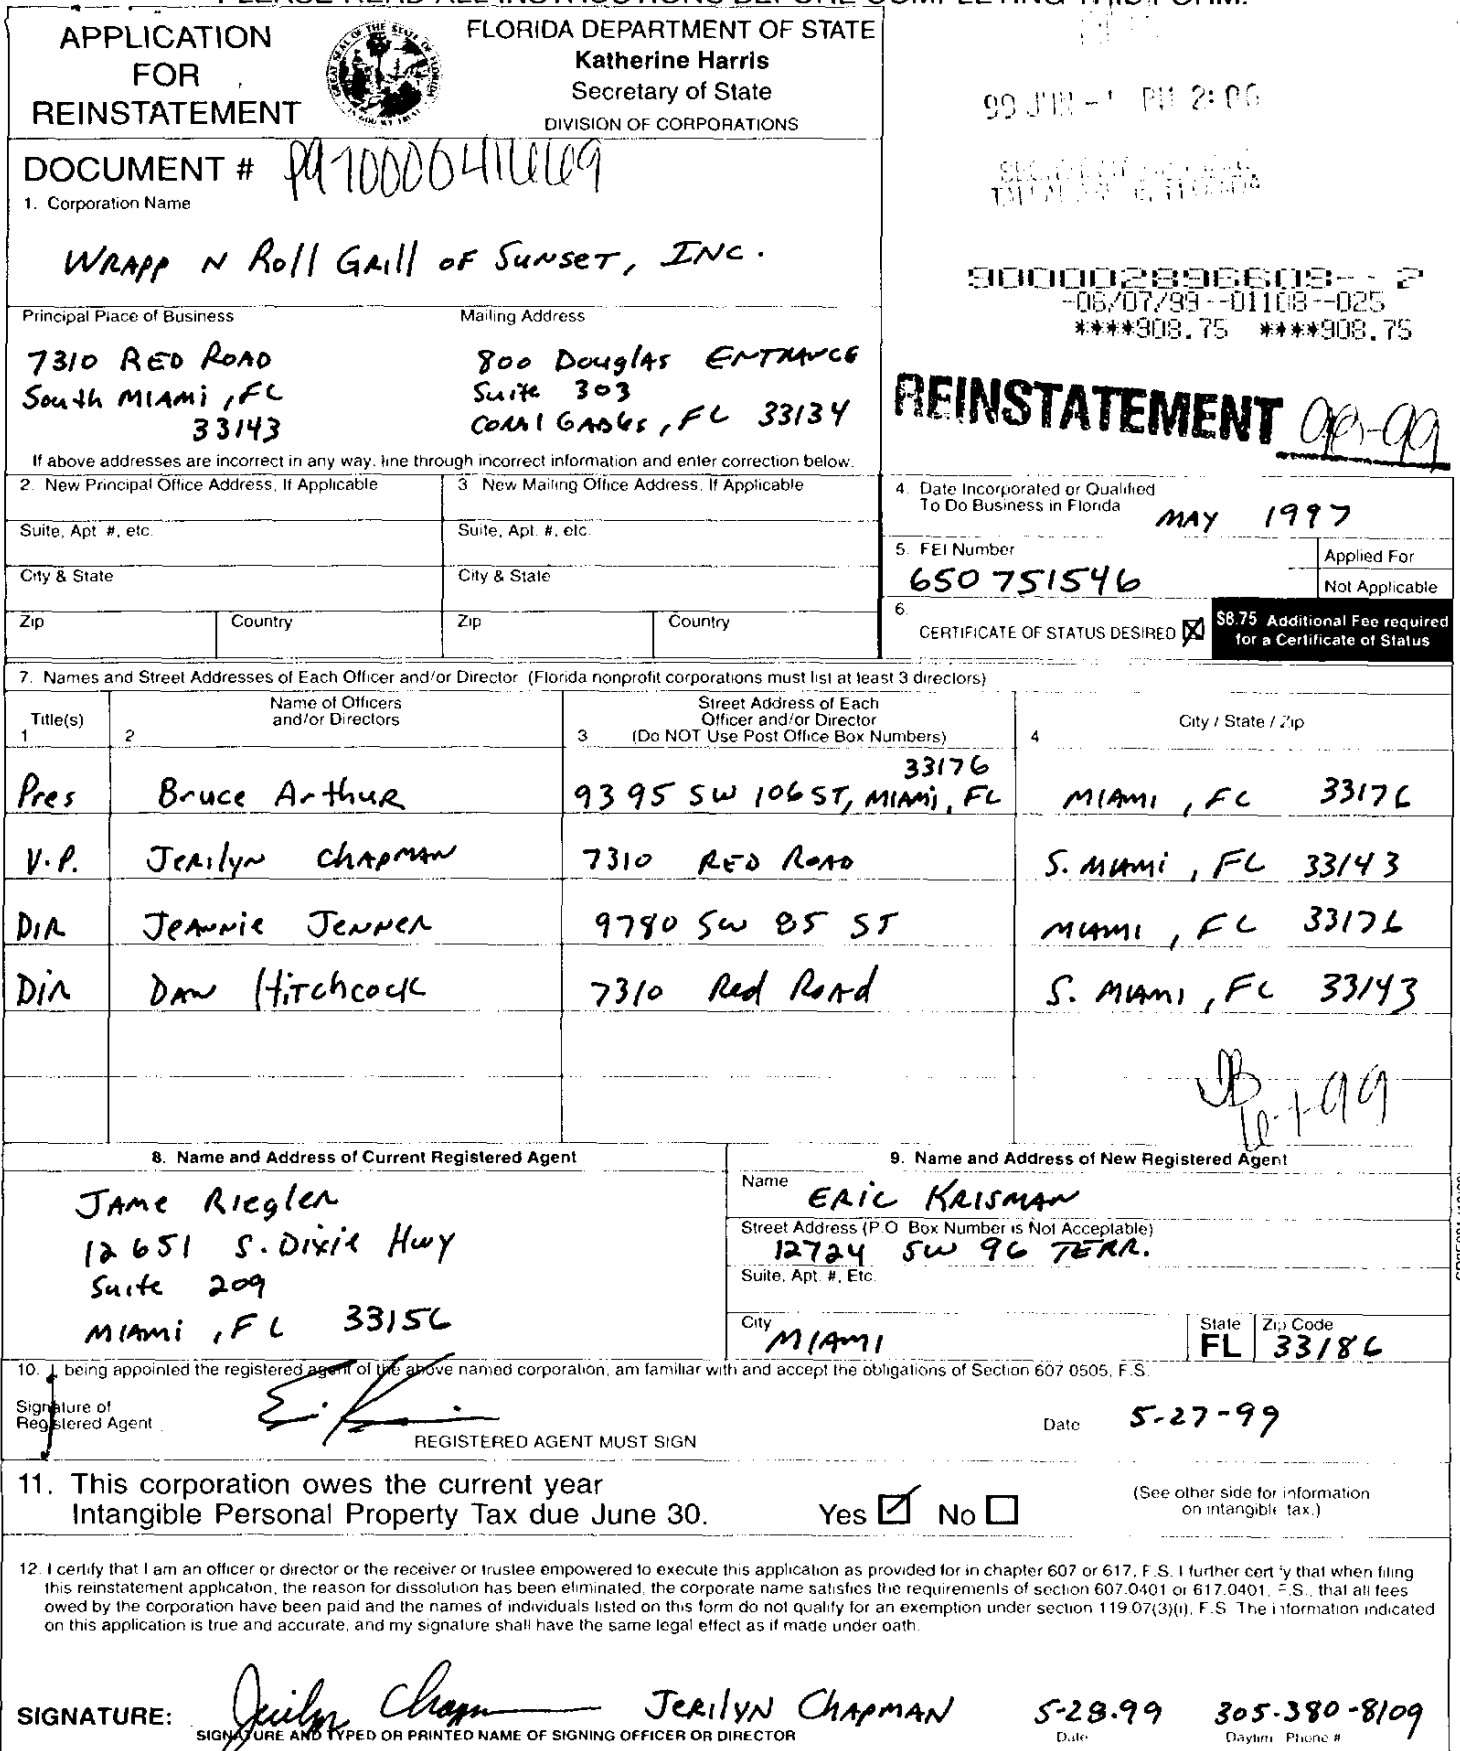 PLEASE READ ALL INSTRUCTIONS BEFORE COMPLETING THIS FORM.
APPLICATION
FOR
REINSTATEMENT
FLORIDA DEPARTMENT OF STATE
Katherine Harris
Secretary of State
DIVISION OF CORPORATIONS
99 JUN -1 PM 2:06
DOCUMENT # P97000041669
1. Corporation Name
WRAPP N Roll GRill OF SUNSET, INC.
900002896609--2
-06/07/99--01108--025
****908.75 ****908.75
Principal Place of Business
7310 RED ROAD
South MIAMI, FL
33143
Mailing Address
800 Douglas ENTRANCE
Suite 303
CORAl GABLES, FL 33134
REINSTATEMENT 98-99
If above addresses are incorrect in any way, line through incorrect information and enter correction below.
2. New Principal Office Address, If Applicable
3. New Mailing Office Address, If Applicable
Suite, Apt. #, etc.
Suite, Apt. #, etc.
City & State
City & State
Zip
Country
Zip
Country
4. Date Incorporated or Qualified
To Do Business in Florida
MAY 1997
5. FEI Number
650751546
Applied For
Not Applicable
6.
CERTIFICATE OF STATUS DESIRED
$8.75 Additional Fee required
for a Certificate of Status
7. Names and Street Addresses of Each Officer and/or Director (Florida nonprofit corporations must list at least 3 directors)
Title(s)
1
Name of Officers
and/or Directors
2
Street Address of Each
Officer and/or Director
3 (Do NOT Use Post Office Box Numbers)
City / State / Zip
4
33176
Pres Bruce Arthur 9395 SW 106 ST, MIAMI, FL MIAMI, FL 33176
V.P. JERilyN CHAPMAN 7310 RED ROAD S. MIAMI, FL 33143
DIR JEANNIE JENNER 9780 SW 85 ST MIAMI, FL 33176
DIR DAN HITCHCOCK 7310 Red ROAd S. MIAMI, FL 33143
8. Name and Address of Current Registered Agent
JAME RIEGLER
12651 S. DIXIE Hwy
Suite 209
MIAMI, FL 33156
9. Name and Address of New Registered Agent
Name
ERIC KRISMAN
Street Address (P.O. Box Number is Not Acceptable)
12724 SW 96 TERR.
Suite, Apt. #, Etc.
City
MIAMI
State
FL
Zip Code
33186
10. I, being appointed the registered agent of the above named corporation, am familiar with and accept the obligations of Section 607.0505, F.S.
Signature of
Registered Agent
REGISTERED AGENT MUST SIGN
Date 5-27-99
11. This corporation owes the current year
Intangible Personal Property Tax due June 30.
Yes No
(See other side for information
on intangible tax.)
12. I certify that I am an officer or director or the receiver or trustee empowered to execute this application as provided for in chapter 607 or 617, F.S. I further certify that when filing
this reinstatement application, the reason for dissolution has been eliminated, the corporate name satisfies the requirements of section 607.0401 or 617.0401, F.S., that all fees
owed by the corporation have been paid and the names of individuals listed on this form do not qualify for an exemption under section 119.07(3)(i), F.S. The information indicated
on this application is true and accurate, and my signature shall have the same legal effect as if made under oath.
SIGNATURE: Jerilyn Chapman JERILYN CHAPMAN 5-28-99 305-380-8109
SIGNATURE AND TYPED OR PRINTED NAME OF SIGNING OFFICER OR DIRECTOR
Date
Daytime Phone #